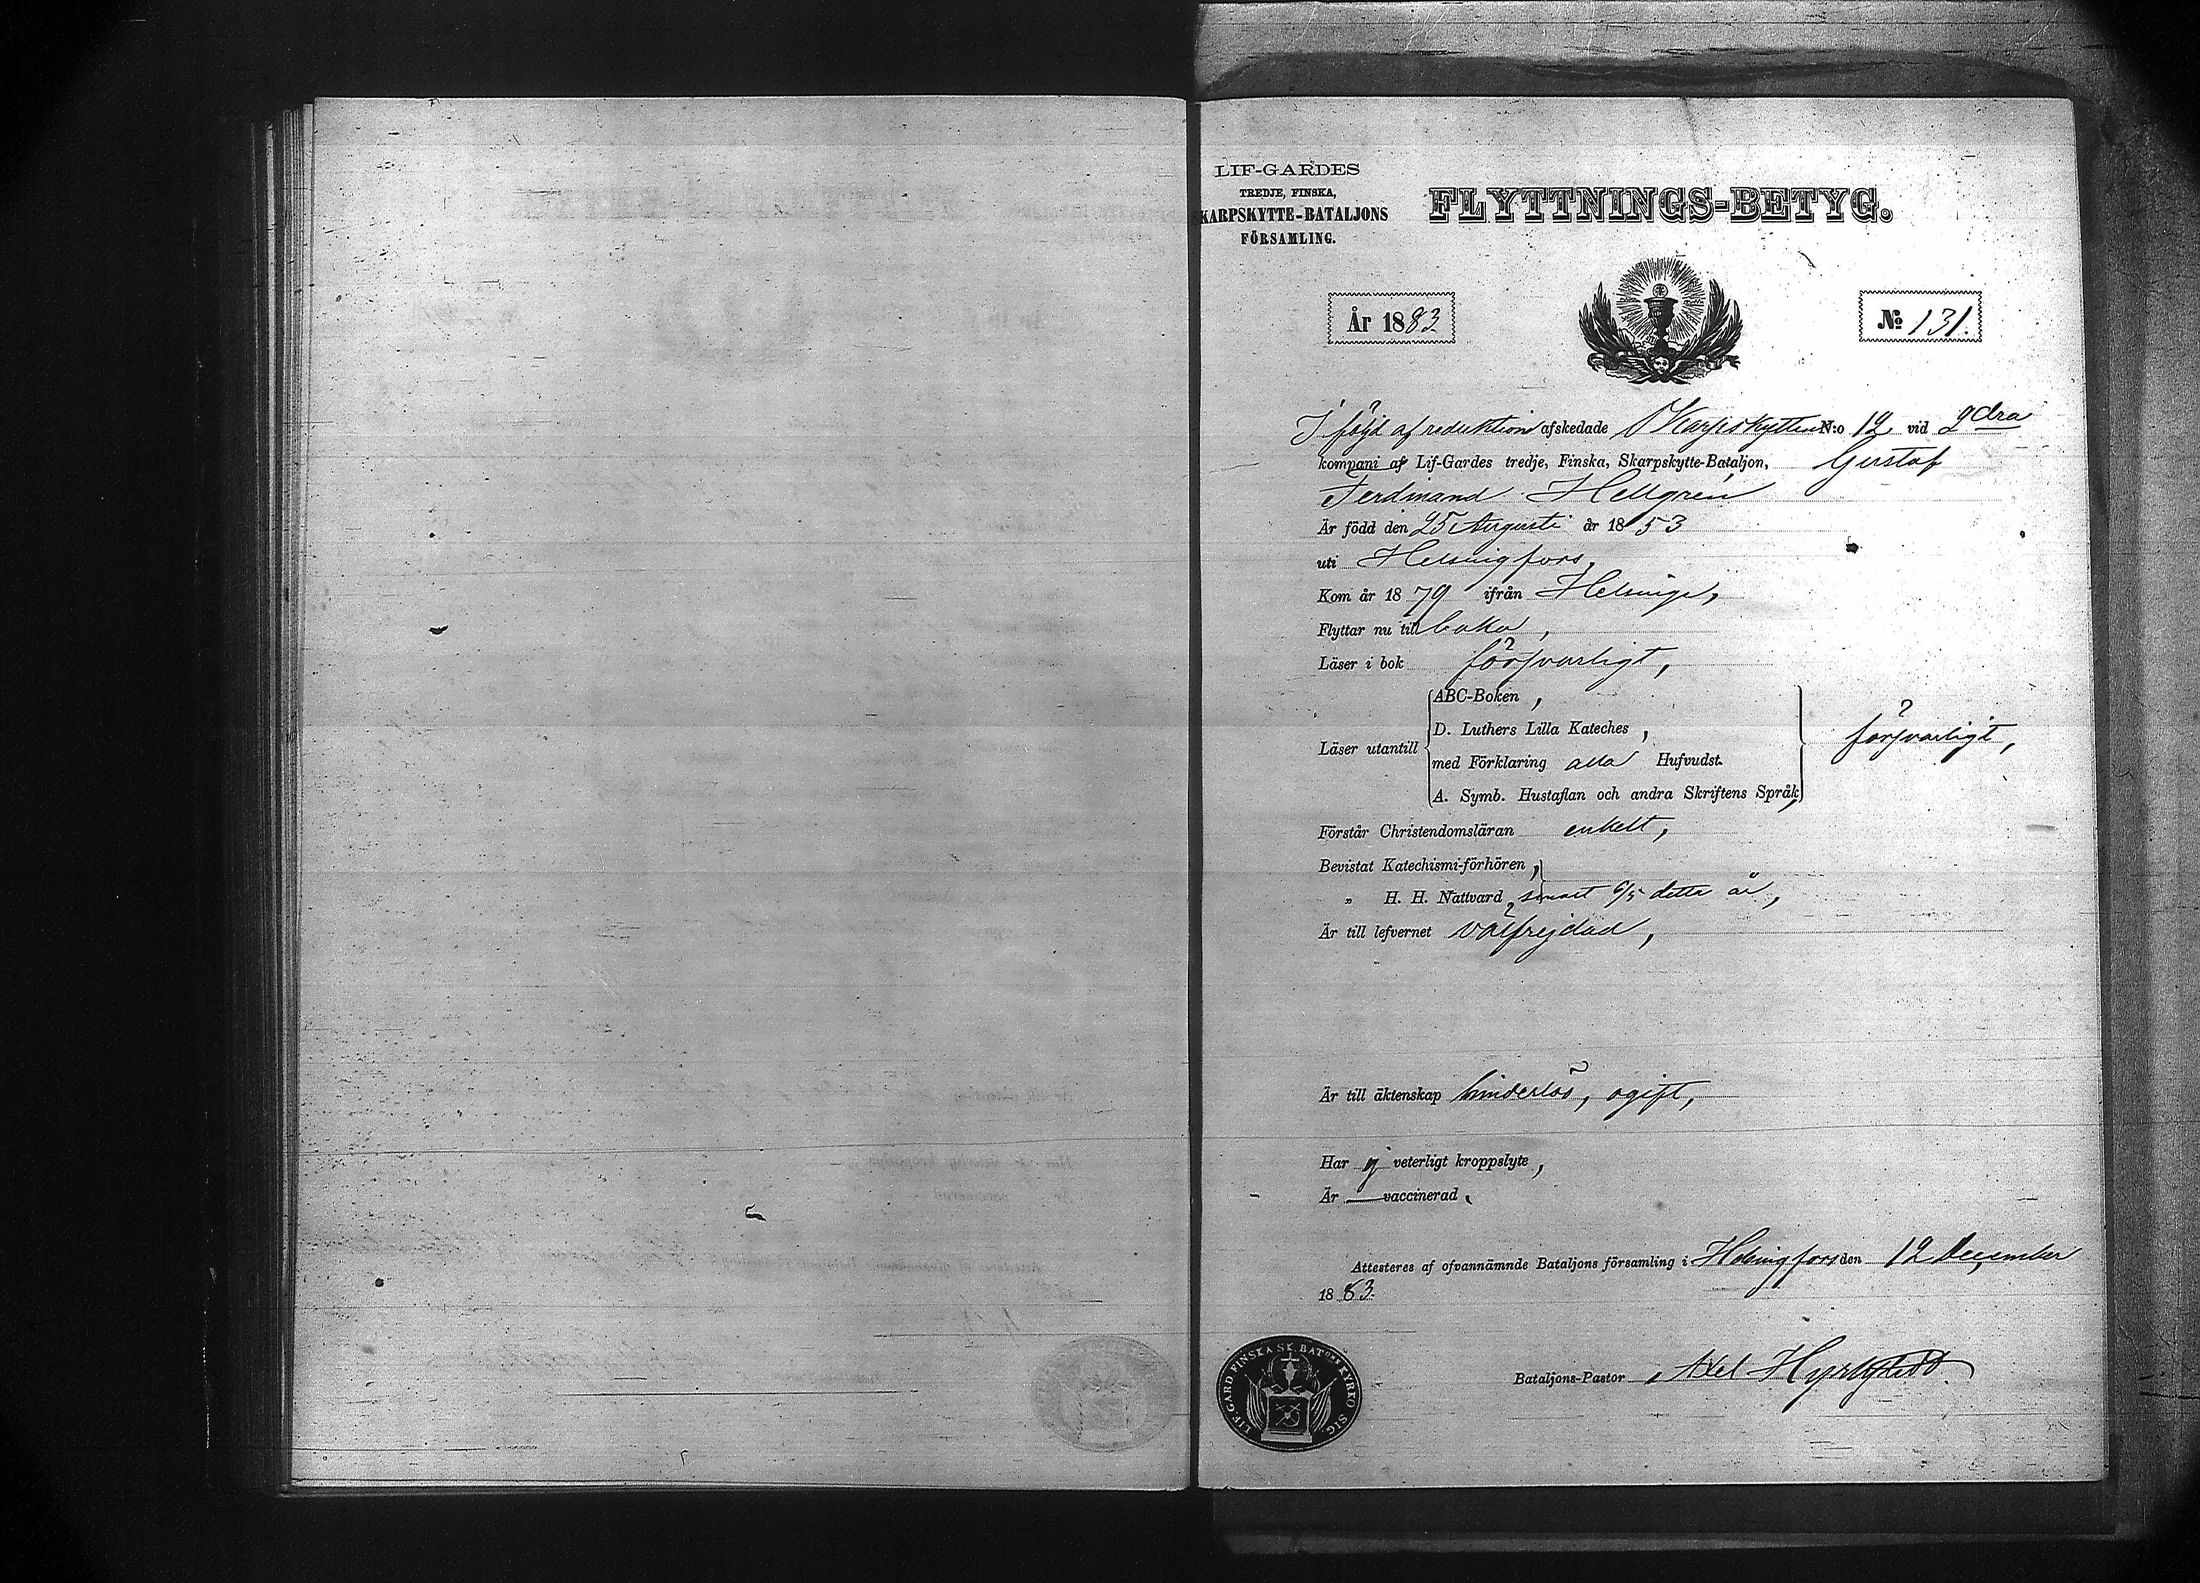 LIF-GARDES
TREDJE, FINSKA,
SKARPSKYTTE-BATALJONS
FÖRSAMLING.
FLYTTNINGS-BETYG.
År 1883
No 131.
I följd af reduktion afskedade Skarpskytten N:o 12 vid 2dra
kompani af Lif-Gardes tredje, Finska, Skarpskytte-Bataljon, Gustaf
Ferdinand Hellgrén
Är född den 25 Augusti år 1853
uti Helsingfors,
Kom år 1879 ifrån Helsinge,
Flyttar nu tillbaka,
Läser i bok försvarligt,
Läser utantill
ABC-Boken,
D. Luthers Lilla Kateches,
med Förklaring alla Hufvudst.
A. Symb. Hustaflan och andra Skriftens Språk,
försvarligt,
Förstår Christendomsläran enkelt,
Bevistat Katechismi-förhören,
" H. H. Nattvard, senast 6/5 detta år,
Är till lefvernet välfrejdad,
Är till äktenskap hinderlös, ogift,
Har ej veterligt kroppslyte,
Är — vaccinerad.
Attesteres af ofvannämnde Bataljons församling i Helsingfors den 12 December
1883.
Bataljons-Pastor Axel
LIF-GARD. FINSKA SK. BATONS KYRKO SIG.